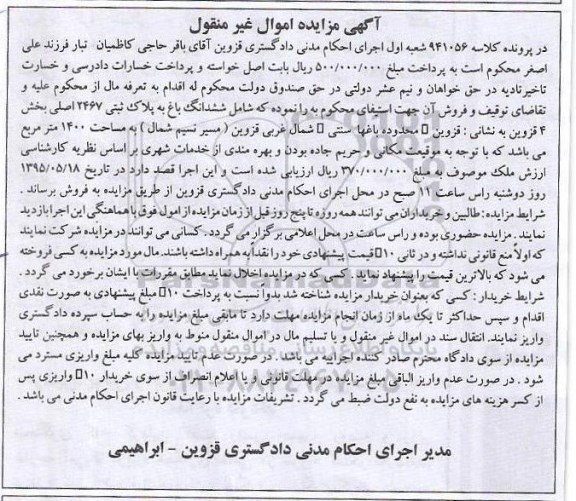 آگهی مزایده اموال غیر منقول
در پرونده کلاسه ۹۴۱۰۵۶ شعبه اول اجرای احکام مدنی دادگستری قزوین آقای باقر حاجی کاظمیان تبار فرزند علی
اصغر محکوم است به پرداخت مبلغ ۵۰۰/۰۰۰/۰۰۰ ریال بابت اصل خواسته و پرداخت خسارات دادرسی و خسارت
تاخیرتادیه در حق خواهان و نیم عشر دولتی در حق صندوق دولت محکوم له اقدام به تعرفه مال از محکوم علیه و
تقاضای توقیف و فروش آن جهت استیفای محکوم به را نموده که شامل ششدانگ باغ به پلاک ثبتی ۲۴۶۷ اصلی بخش
۴ قزوین به نشانی : قزوین محدوده باغها سنتی شمال غربی قزوین ( مسیر نسیم شمال ) به مساحت ۱۴۰۰ متر مربع
می باشد که با توجه به موقعیت مکانی و حریم جاده بودن و بهره مندی از خدمات شهری بر اساس نظریه کارشناسی
ارزش ملک موصوف به مبلغ ۳۷۰/۰۰۰/۰۰۰ ریال ارزیابی شده است و این اجرا قصد دارد در تاریخ ۱۳۹۵/۰۵/۱۸
روز دوشنبه راس ساعت ۱۱ صبح در محل اجرای احکام مدنی دادگستری قزوین از طریق مزایده به فروش برساند .
شرایط مزایده : طالبین و خریداران می توانند همه روزه تا پنج روز قبل از زمان مزایده از امول فوق با هماهنگی این اجرا بازدید
نمایند . مزایده حضوری بوده و راس ساعت در محل اعلامی برگزار می گردد . کسانی می توانند در مزایده شرکت نمایند
که اولاً منع قانونی نداشته و در ثانی ۱۰ قیمت پیشنهادی خود را نقداً به همراه داشته باشند. مال مورد مزایده به کسی فروخته
می شود که بالاترین قیمت را پیشنهاد نماید . کسی که در مزایده اخلال نماید مطابق مقررات با ایشان برخورد می گردد .
شرایط خریدار : کسی که بعنوان خریدار مزایده شناخته شد بدواً نسبت به پرداخت ۱۰ مبلغ پیشنهادی به صورت نقدی
اقدام و سپس حداکثر تا یک ماه از زمان انجام مزایده مهلت دارد تا مابقی مبلغ مزایده را به حساب سپرده دادگستری
واریز نمایند. انتقال سند در اموال غیر منقول و یا تسلیم مال در اموال منقول منوط به واریز بهای مزایده و همچنین تایید
مزایده از سوی دادگاه محترم صادر کننده اجراییه می باشد . در صورت عدم تایید مزایده کلیه مبلغ واریزی مسترد می
شود . در صورت عدم واریز الباقی مبلغ مزایده در مهلت قانونی و یا اعلام انصراف از سوی خریدار ۱۰ واریزی پس
از کسر هزینه های مزایده به نفع دولت ضبط می گردد . تشریفات مزایده با رعایت قانون اجرای احکام مدنی می باشد .
مدیر اجرای احکام مدنی دادگستری قزوین - ابراهیمی